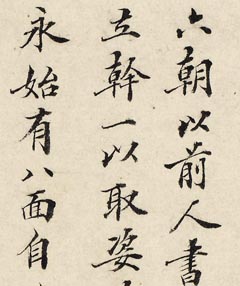 六朝以前人書
立幹一以取姿
永始有八面自